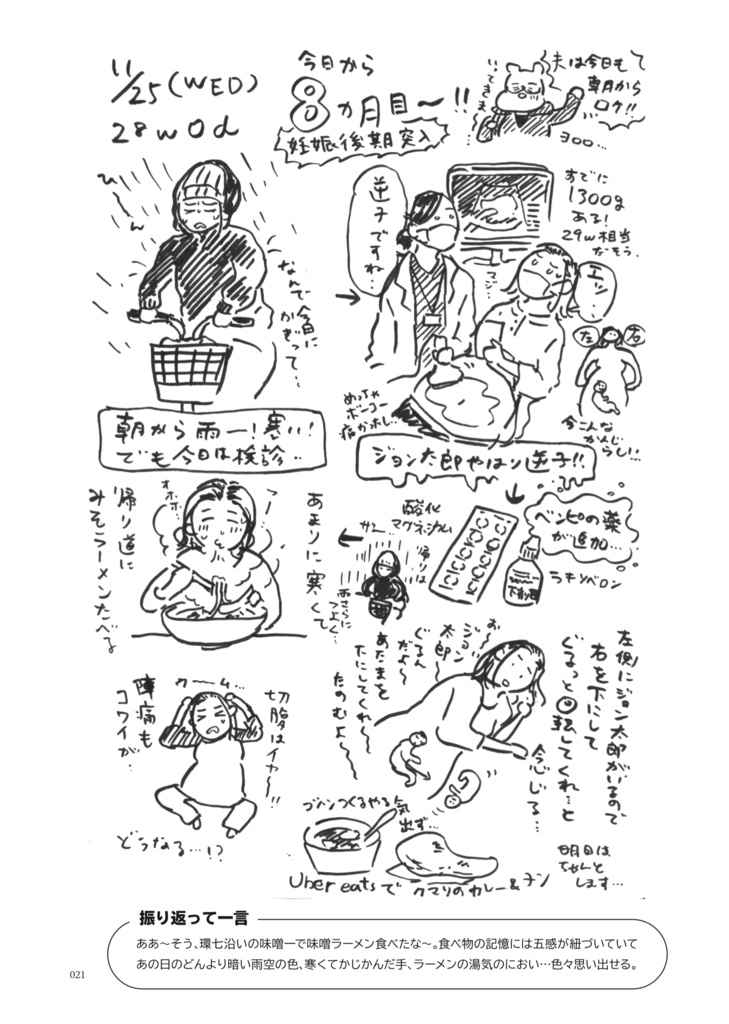 11/25(WED)
28w0d
今日から
8ヵ月目〜!!
妊娠後期突入
夫は今日も
朝から
ロケ!!
いってきま
ヨロ…
ひ〜ん
なんで今日に
かぎって…
朝から雨ー!寒い!
でも今日は検診…
逆子ですね…
すでに
1300g
ある!
29w相当
だそう。
エッ…
マジ…
左
右
今こんな
かんじ
らしい…
めっちゃ
ボーコー
痛かホレ…
ジョン太郎やはり逆子!!
ベンピの薬
が追加…
酸化
マグネシウム
ラキソベロン
下剤
サー…
帰りは
雨さらに
つよく…
あまりに寒くて
帰り道に
みそラーメンたべる
オホホ
左側にジョン太郎がいるので
右を下にして
ぐるっと回転してくれ…と
念じる…
お〜
ジョン
太郎
だよ〜
ぐるん
あたまを
下にしてくれ〜
たのむよ〜
切腹はイヤ〜!!
ウーム…
陣痛も
コワイが…
どうなる…!?
ゴハンつくるやる気
出ず…
Uber eatsで クマリのカレー&ナン
明日は
ちゃんと
します…
振り返って一言
ああ〜そう、環七沿いの味噌一で味噌ラーメン食べたな〜。食べ物の記憶には五感が紐づいていて
あの日のどんより暗い雨空の色、寒くてかじかんだ手、ラーメンの湯気のにおい…色々思い出せる。
021